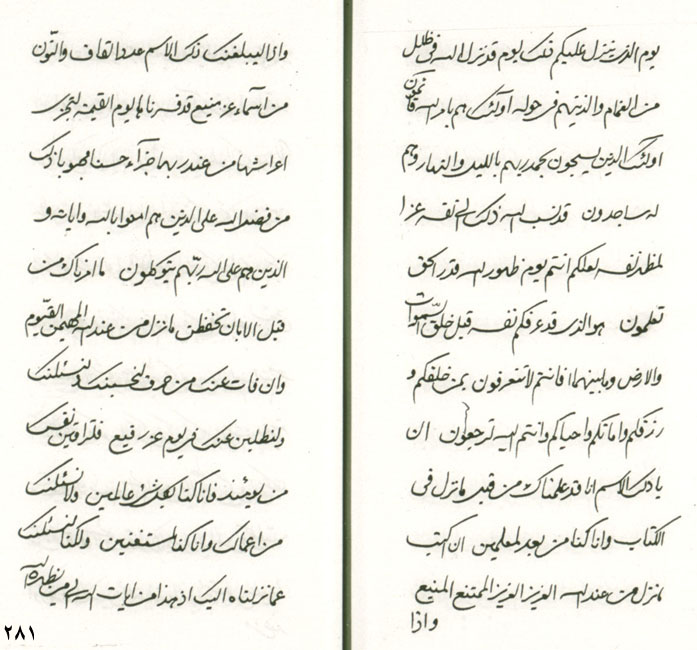 يوم الذي ينزل عليكم فيك يوم قد نزل الله في ظلل
من الغمام والذينهم في حوله اولئك هم بامر الله قائمون
اولئك الذين يسبحون بحمد ربهم بالليل والنهار وهم
له ساجدون قد نسب الله ذلك الى نفسه عزا
لمظهر نفسه لعلكم انتم يوم ظهور الله قدر الحق
تعلمون هو الذي قد عرفكم نفسه قبل خلق السموات
والارض وما بينهما فانتم لا تتعرفون بمن خلقكم و
رزقكم واماتكم واحياكم وانتم اليه ترجعون ان
يا ذلك الاسم انا قد علمناك من قبل ما نزل في
الكتاب وانا كنا من بعد لمعلمين ان اكتب
ما نزل من عند الله العزيز العزيز الممتنع المنيع
واذا
واذا ليبلغنك ذلك الاسم عدد القاف والنون
من اسماء عز منيع قد فزنا بها يوم القيمة لتجزى
اعراشها من عند ربها جزآء حسنا محبوبا ذلك
من فضل الله على الذين هم امنوا بالله واياته و
الذينهم على الله ربهم يتوكلون ما امرناك من
قبل الا بان تحفظن ما نزل من عند الله المهيمن القيوم
وان فات عنك من حرف لنحسبنك ولنسئلنك
ولنطلبن عنك في يوم عز رفيع فلتراقبن نفسك
من يومئذ فانا كنا بكل شئ عالمين ولا نسئلنك
من اعمالك وانا كنا لمستغنين ولكنا لنسئلنك
عما نزلناه اليك اذ هذا من ايات الله لمن يظهره الله
٢٨١